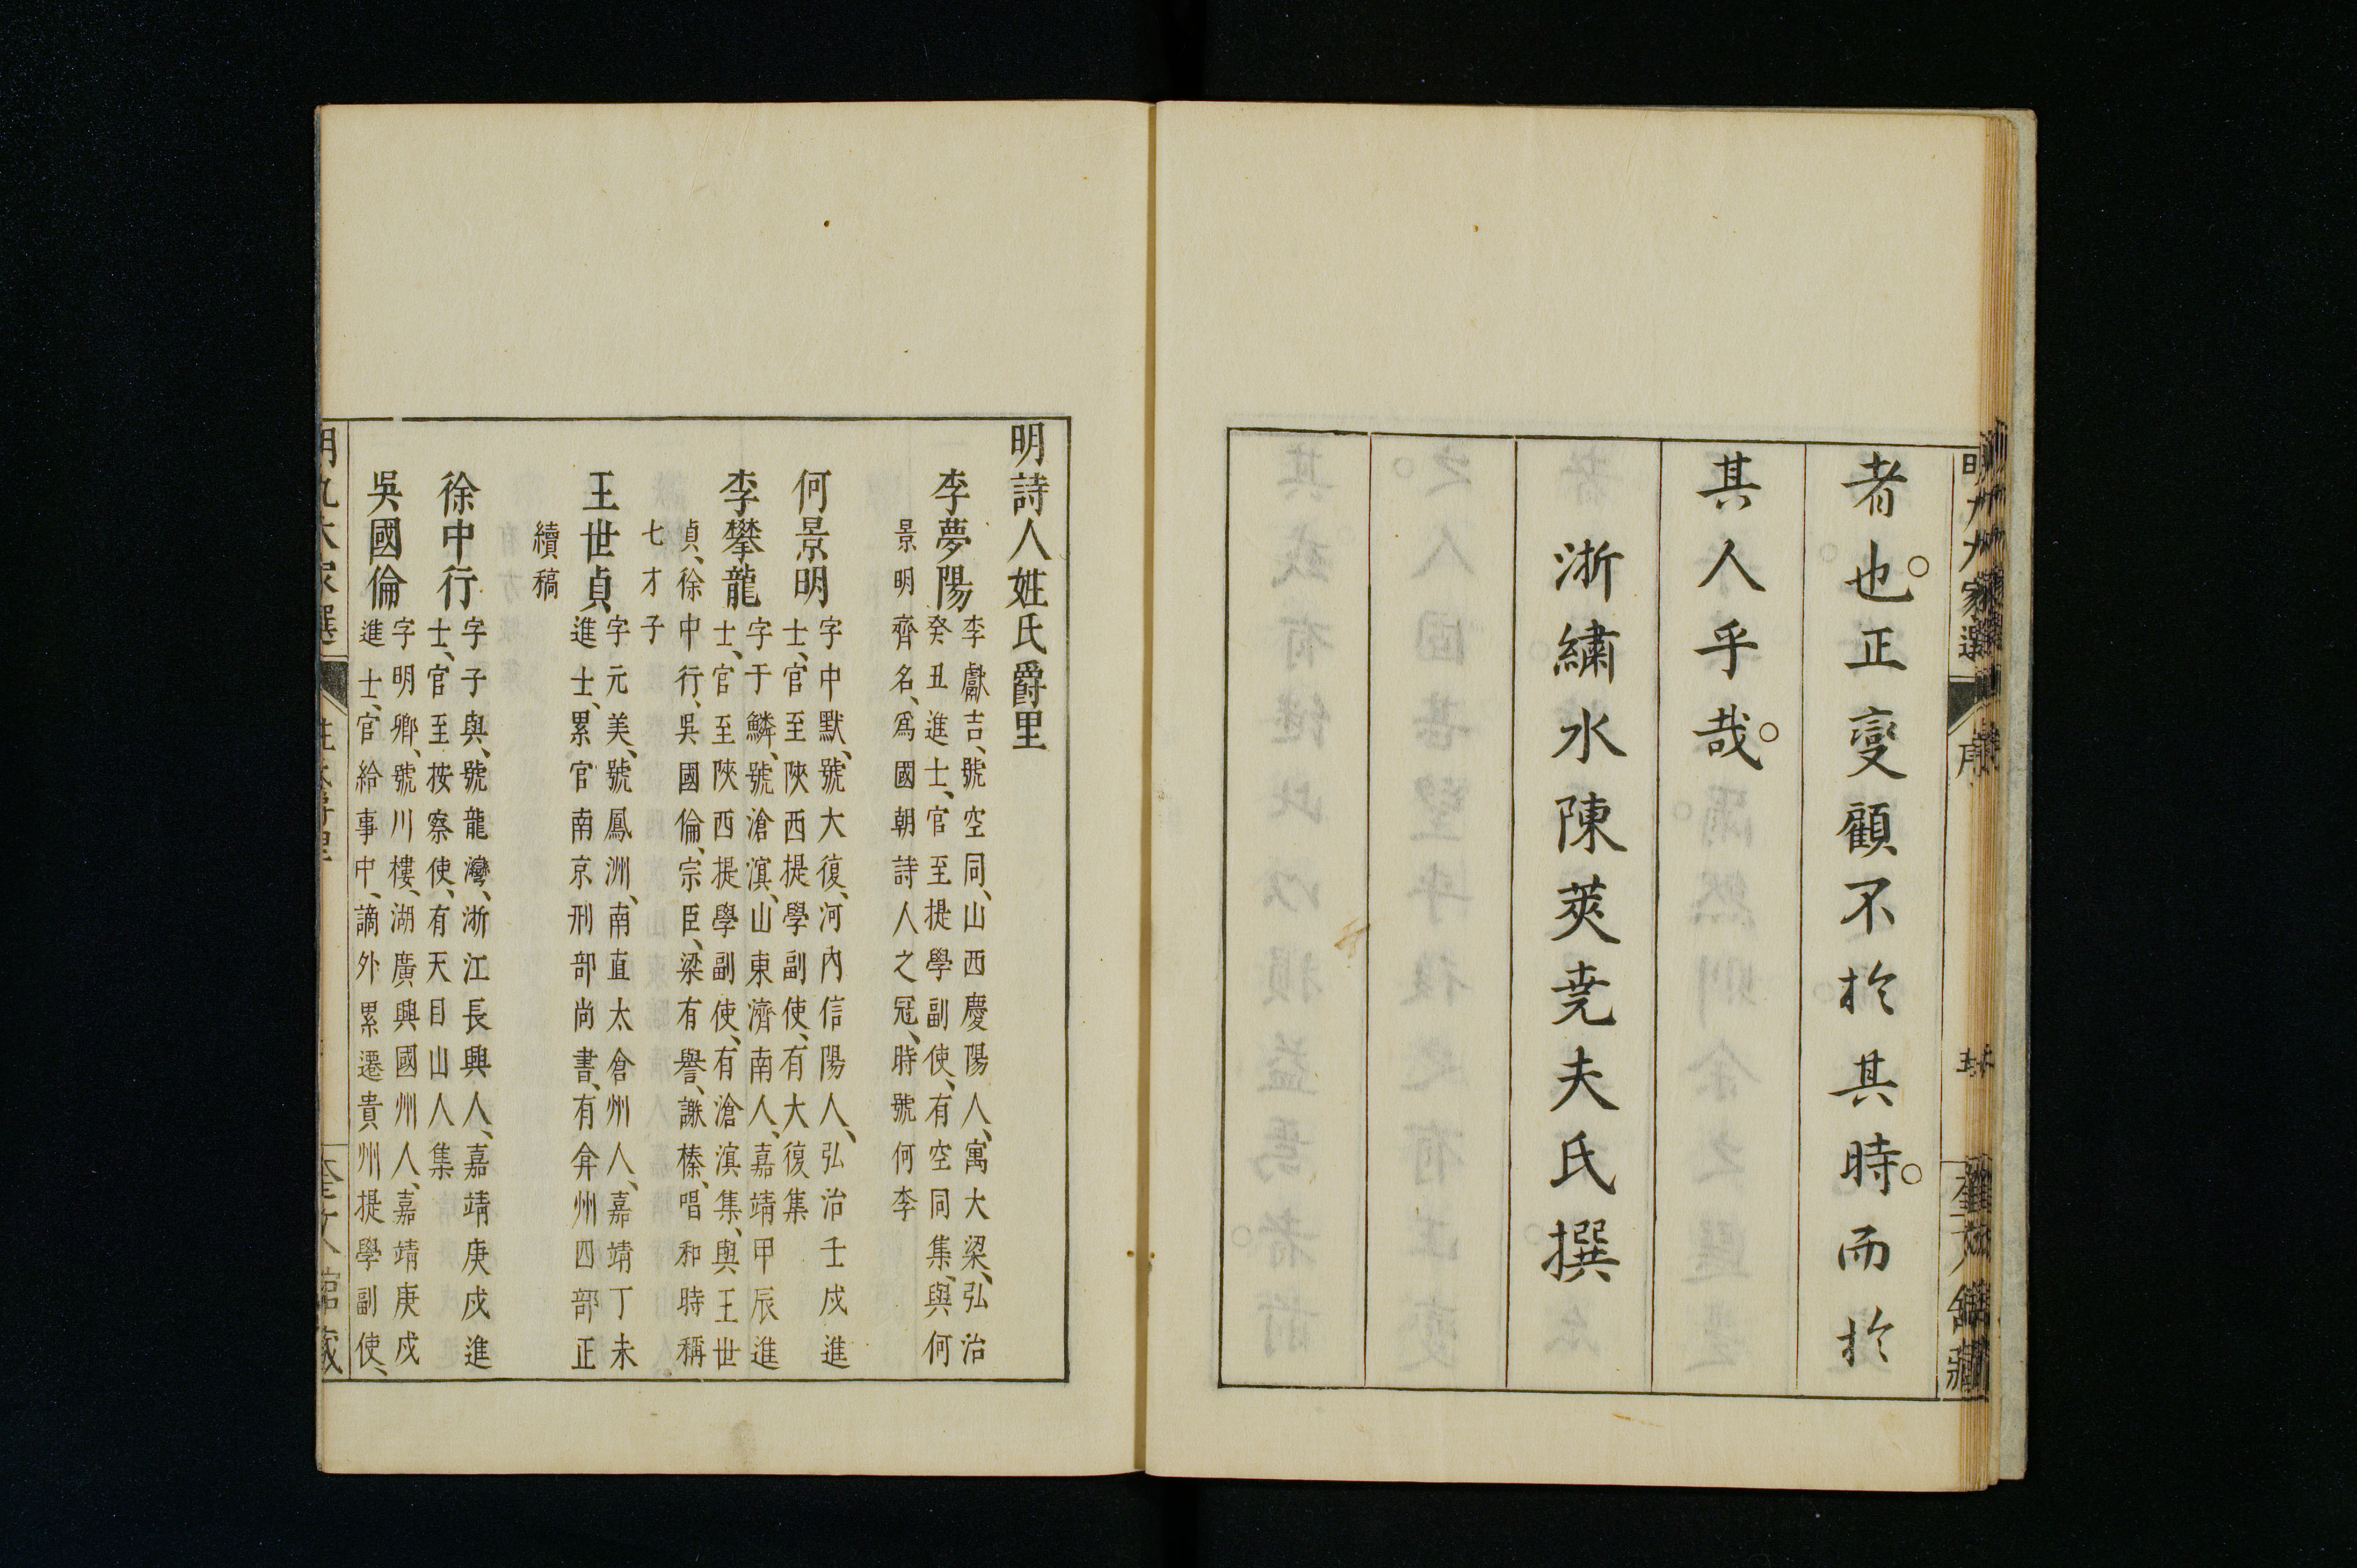 者也。正變顧不於其時。而於
其人乎哉。
浙繡水陳萊堯夫氏撰
明詩人姓氏爵里
李夢陽
李獻吉、號空同、山西慶陽人、寓大梁、弘治
癸丑進士、官至提學副使、有空同集、與何
景明齊名、爲國朝詩人之冠、時號何李
何景明
字中默、號大復、河內信陽人、弘治壬戌進
士、官至陝西提學副使、有大復集
李攀龍
字于鱗、號滄溟、山東濟南人、嘉靖甲辰進
士、官至陝西提學副使、有滄溟集、與王世
貞、徐中行、吳國倫、宗臣、梁有譽、謝榛、唱和時稱
七才子
王世貞
字元美、號鳳洲、南直太倉州人、嘉靖丁未
進士、累官南京刑部尚書、有弇州四部正
續稿
徐中行
字子與、號龍灣、浙江長興人、嘉靖庚戌進
士、官至按察使、有天目山人集
吳國倫
字明卿、號川樓、湖廣興國州人、嘉靖庚戌
進士、官給事中、謫外累遷貴州提學副使、